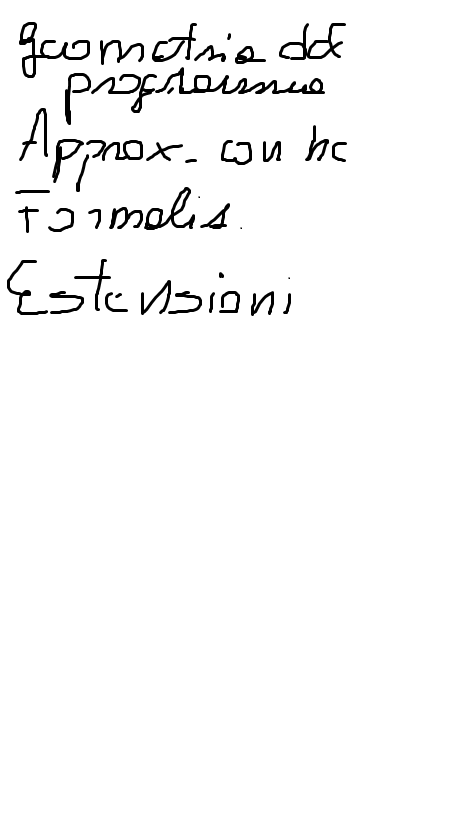 Geometria del
programma
Approx. con hc
Formalis.
Estensioni